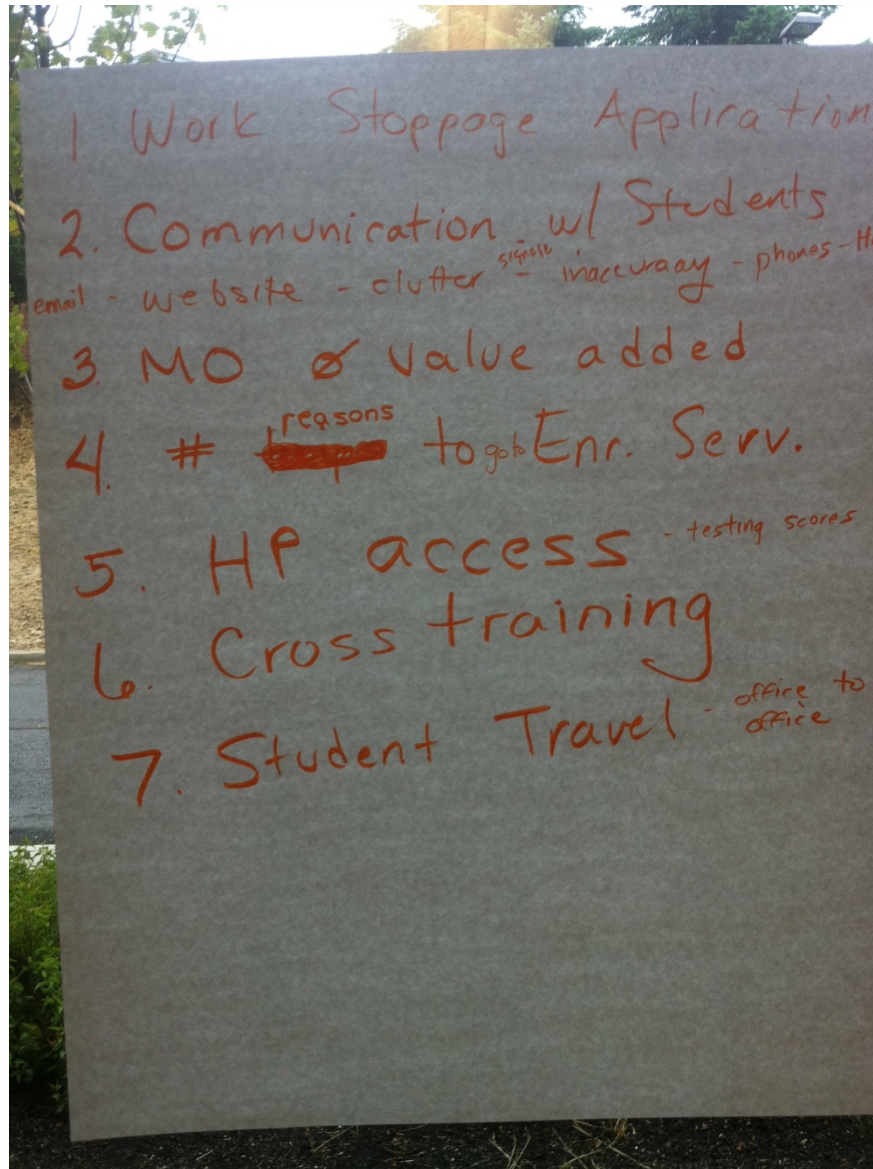 1 Work Stoppage Application
2. Communication w/ Students
email - website - clutter - signage - inaccuraay - phones -
3. MO ø value added
4. # reasons to go to Enr. Serv.
5. HP access - testing scores
6. Cross training
7. Student Travel - office to
office